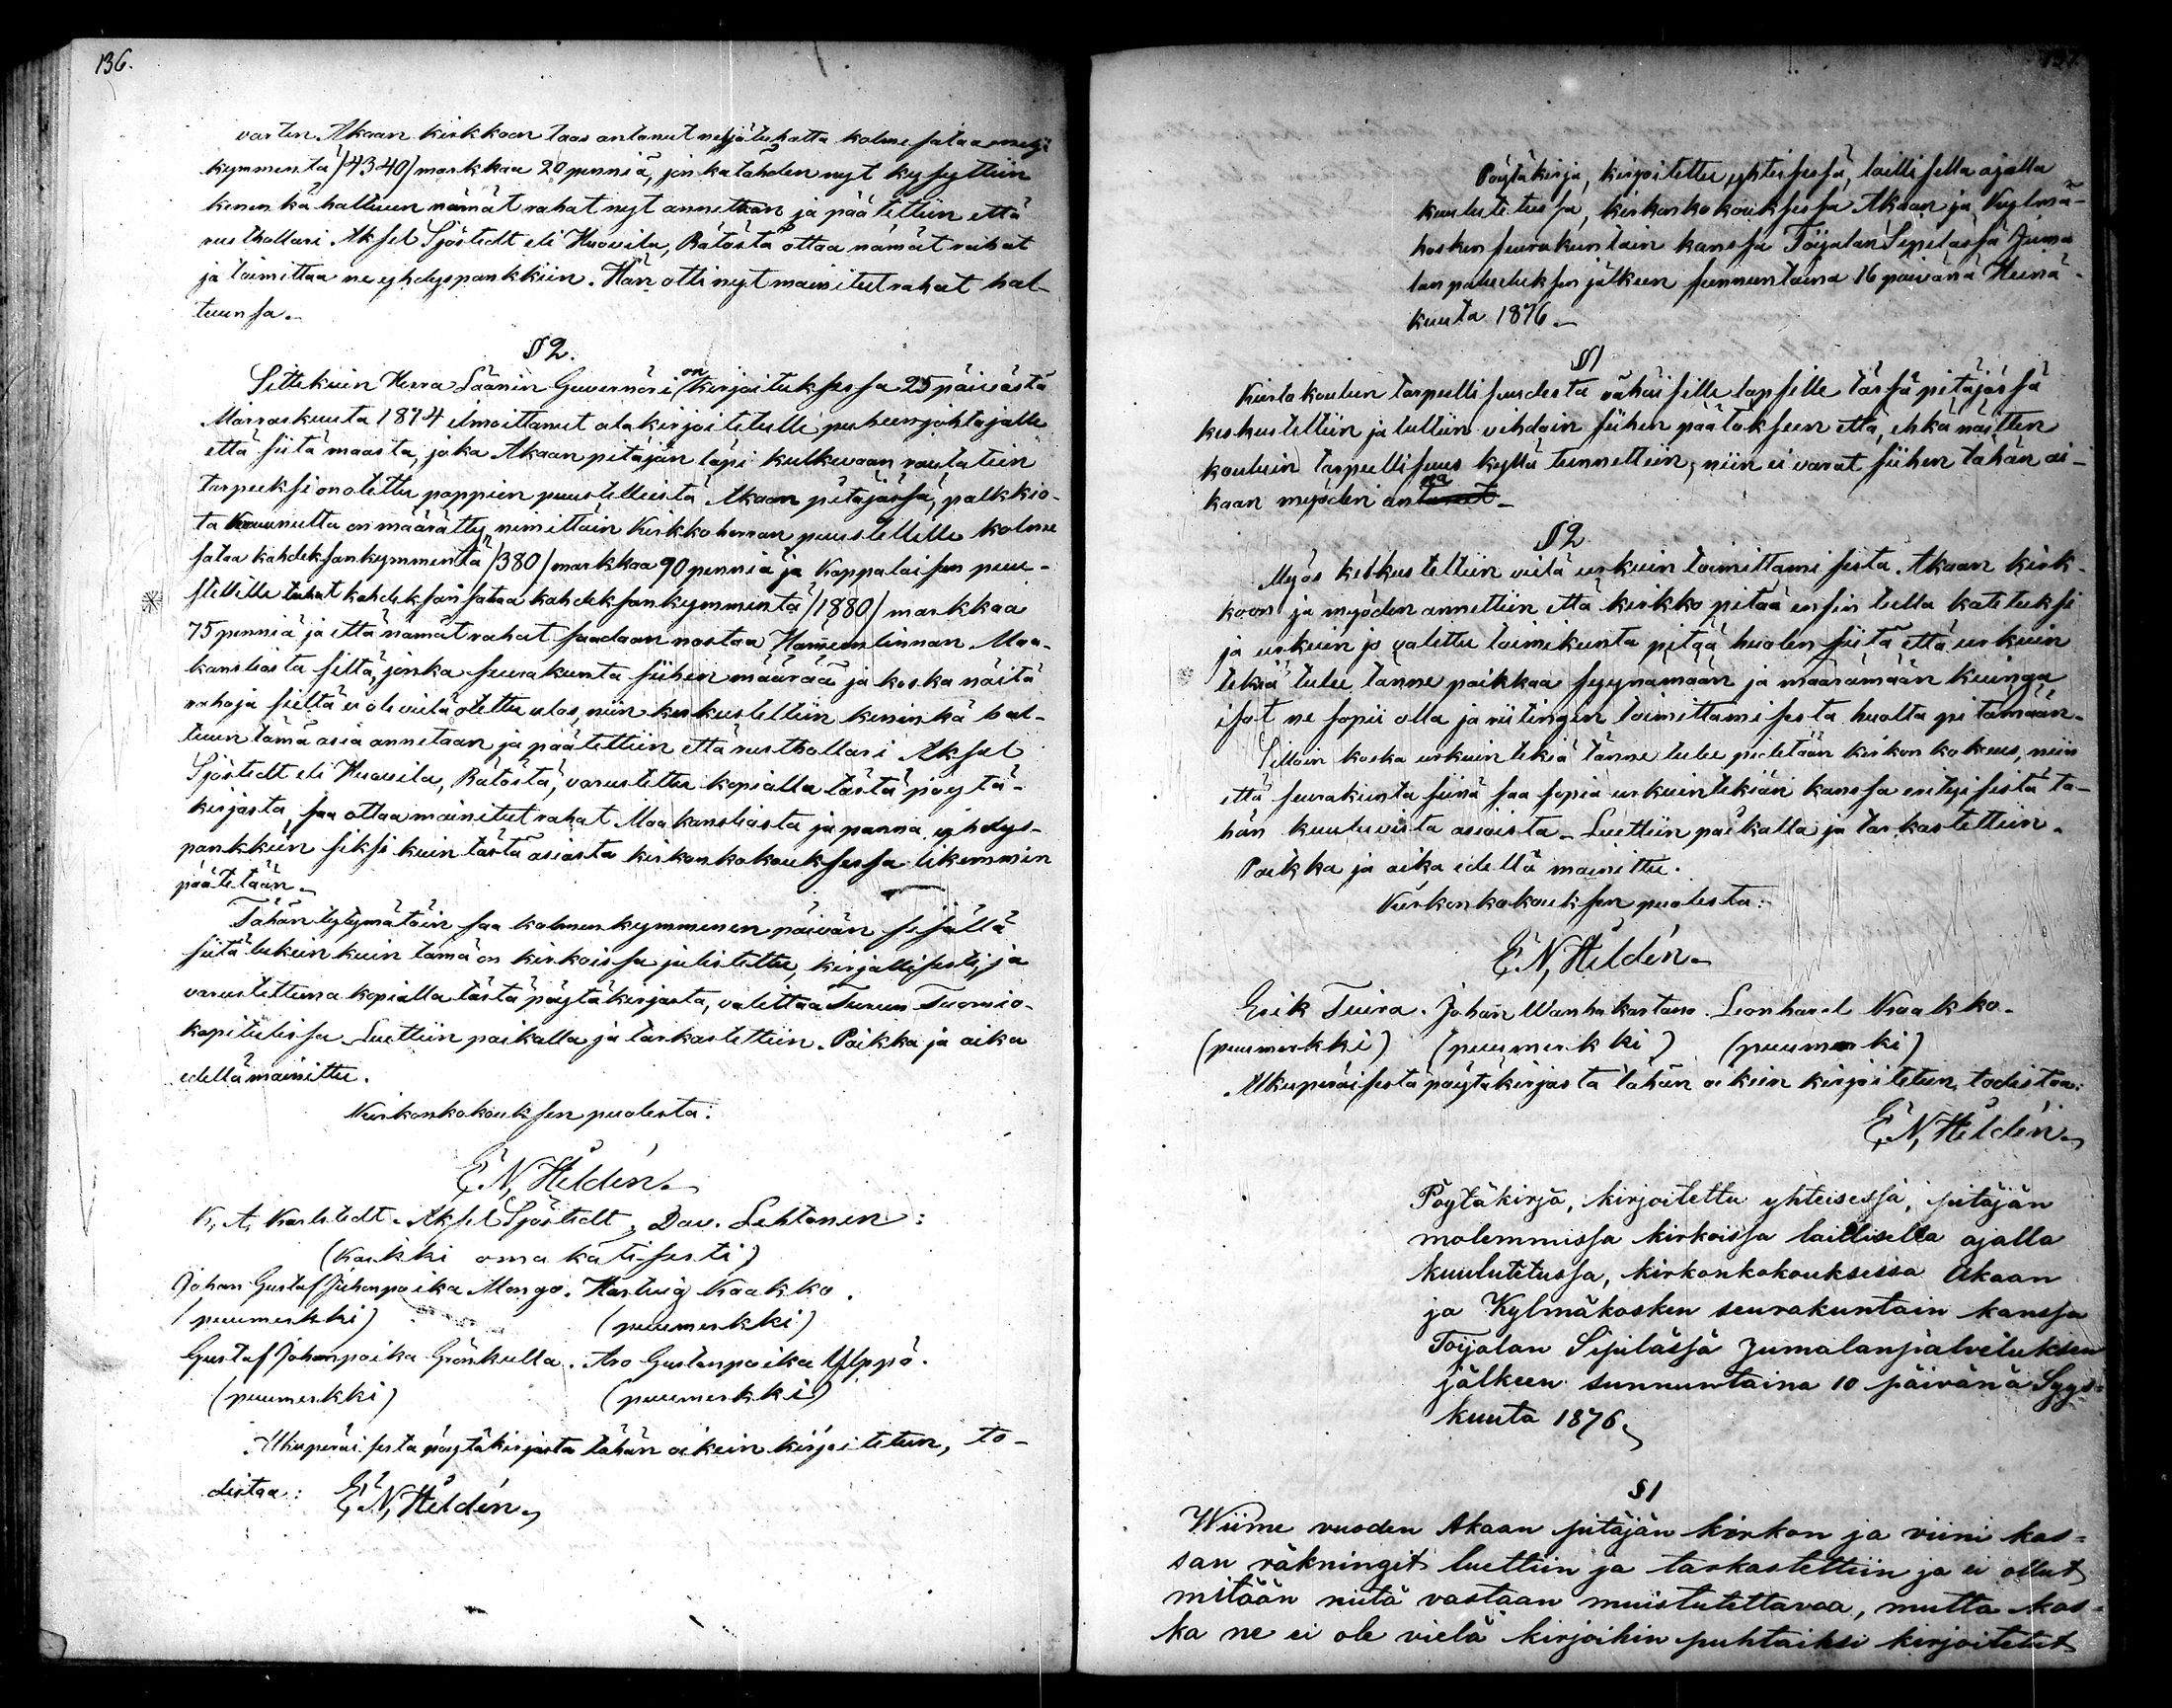 136.
varten Akaan kirkkoon taas antanut neljätuhatta kolmesataa neljä
kymmentä /4340/ markkaa 20 penniä, jonkatähden nyt kysyttiin
kenenkä haltuun nämät rahat nyt annettaan ja päätettiin että
rusthollari Aksel Sjöstedt eli Huovila, Rätöstä ottaa nämät rahat
ja toimittaa ne yhdyspankkiin. Hän otti nyt mainitut rahat hal-
tuunsa.
§ 2.
Sittekuin Herra Läänin Guvernöri on kirjoituksessa 25 päivästä
Marraskuuta 1874 ilmoittanut alakirjoitetulle puheenjohtajalle
että siitä maasta, joka Akaan pitäjän läpi kulkevaan rautatiin
tarpeeksi on otettu pappien puustelleistä Akaan pitäjässä, palkkio-
ta Kruunulta on määrätty, nimittäin Kirkkoherran puustellille kolme
sataa kahdeksankymmentä /380/ markkaa 90 penniä ja Kappalaisen puu-
stellille tuhat kahdeksansataa kahdeksankymmentä /1880/ markkaa
75 penniä ja että nämät rahat saadaan nostaa Hämeenlinnan Maa-
kansliasta siltä, jonka seurakunta siihen määrää ja koska näitä
rahoja sieltä ei ole vielä otettu ulos, niin keskusteltiin keninkä hal-
tuun tämä asia annetaan ja päätettiin että rusthollari Aksel
Sjöstedt eli Huovila, Rätöstä, varustettu kopialla tästä pöytä-
kirjasta, saa ottaa mainitut rahat Maakansliasta ja panna yhdys-
pankkiin siksi kuin tästä asiasta kirkonkokouksessa likemmin
päätetään.
Tähän tytymätöin saa kolmenkymmenen päivän sisällä
siitä lukein kuin tämä on kirkoissa julistettu, kirjallisesti, ja
varustettuna kopialla tästä pöytäkirjasta, valittaa Turun Tuomio-
kapitulissa. Luettiin paikalla ja tarkastettiin. Paikka ja aika
edellämainittu.
Kirkonkokouksen puolesta:
E. N. Heldén.
K. A. Karlstedt. Aksel Sjöstedt, Dav. Lehtonen:
(Kaikki omakätisesti)
Johan Gustaf Juhanpoika Mongo. Hartvig Kaakko.
(puumerkki) (puumerkki)
Gustaf Johanpoika Grönkulla. Aro Gustanpoika Ylppö.
(puumerkki) (puumerkki)
Alkuperäisestä pöytäkirjasta tähän oikein kirjoitetun, to-
distaa: E. N. Heldén.
Pöytäkirja, kirjoitettu yhteisessä, laillisella ajalla
kuulutetussa, kirkonkokouksessa Akaan ja Kylmä-
kosken seurakuntain kanssa Toijalan Sipilässä Juma-
lanpalveluksen jälkeen sunnuntaina 16 päivänä Heinä-
kuuta 1876.
§ 1
Kiertokoulun tarpeellisuudesta vähäisille lapsille tässä pitäjässä
keskusteltiin ja tultiin vihdoin siihen päätökseen että, ehkä naitten
kouluin tarpeellisuus kyllä tunnettiin, niin ei varat siihen tähän ai-
kaan myöden anna
§ 2
Myös keskusteltiin vielä urkuin toimittamisesta Akaan kirk-
koon ja myöden annettiin että kirkko pitää ensin tulla katetuksi
ja urkuin jo valittu toimikunta pitää huolen siitä että urkuin
tekiä tulee tänne paikkaa syynämään ja määrämään kuinga
isot ne sopii olla ja riitingin toimittamisesta huolta pitämään.
Silloin koska urkuin tekiä tänne tulee pidetään kirkon kokous, niin
että seurakunta siinä saa sopia urkuintekiän kanssa erityisistä tä-
hän kuuluvista asioista. Luettiin paikalla ja tarkastettiin.
Paikka ja aika edellä mainittu.
Kirkonkokouksen puolesta:
E. N. Heldén.
Erik Tuira. Johan Wanhakartano. Leonhard Kaakko.
(puumerkki) (puumerkki) (puumerkki)
Alkuperäisestä pöytäkirjasta tähän oikein kirjoitetun, todistaa:
E. N. Heldén.
Pöytäkirja, kirjoitettu yhteisessä, pitäjän
molemmissa kirkoissa laillisella ajalla
kuulutetussa, kirkonkokouksessa Akaan
ja Kylmäkosken seurakuntain kanssa
Toijalan Sipilässä Jumalanpalveluksen
jälkeen sunnuntaina 10 päivänä Syys-
kuuta 1876.
§ 1
Wiime vuoden Akaan pitäjän kirkon ja viini kas-
san räkningit luettiin ja tarkastettiin ja ei ollut
mitään niitä vastaan muistutettavaa, mutta kos-
ka ne ei ole vielä kirjoihin puhtaiksi kirjoitetut